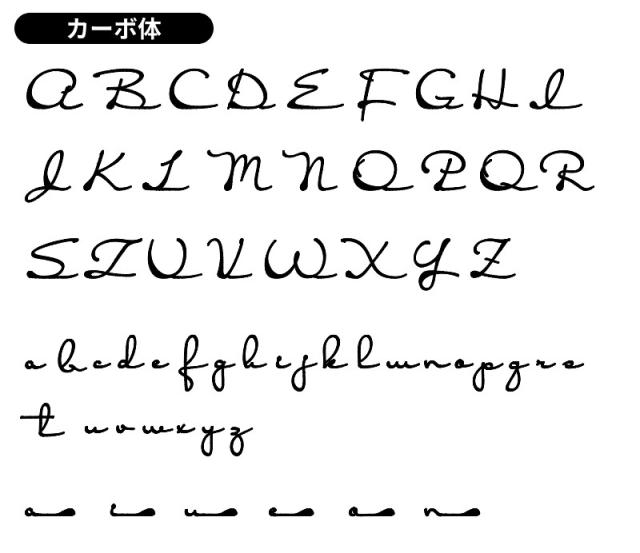 カーボ体
A B C D E F G H I
J K L M N O P Q R
S T U V W X Y Z
a b c d e f g h i j k l m n o p q r s
t u v w x y z
a i u e o n